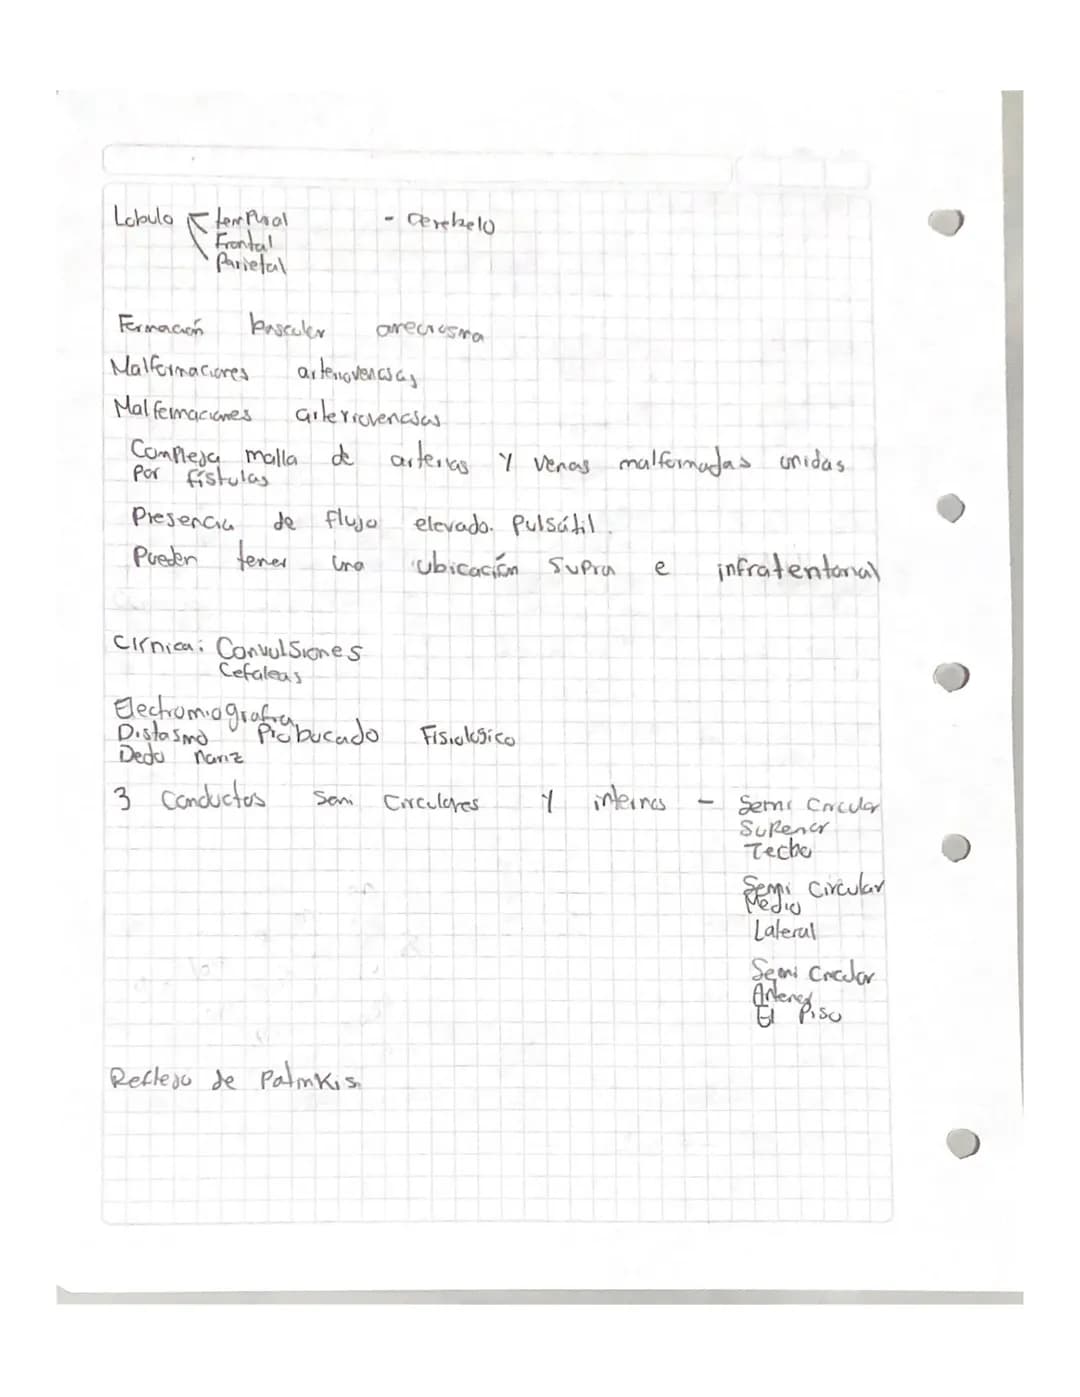 Lobulo temporal - cerebelo
Frontal
Parietal
Formación bascular
Malformaciones arteriovenosas
Malformaciones arteriovenosas
Compleja malla de arterias Y venas malformadas unidas
por fístulas
Presencia de flujo elevado. Pulsátil.
Pueden tener una ubicación Supra e infratentorial
Clínica: Convulsiones
Cefaleas
Electromiografía
Distasmo Probucado Fisiologico
Dedo nariz
3 Conductos Semi Circulares Y internos - Semi Circular
Superior
Techo
Semi Circular
Medio
Lateral
Semi Circular
El Piso
Reflejo de